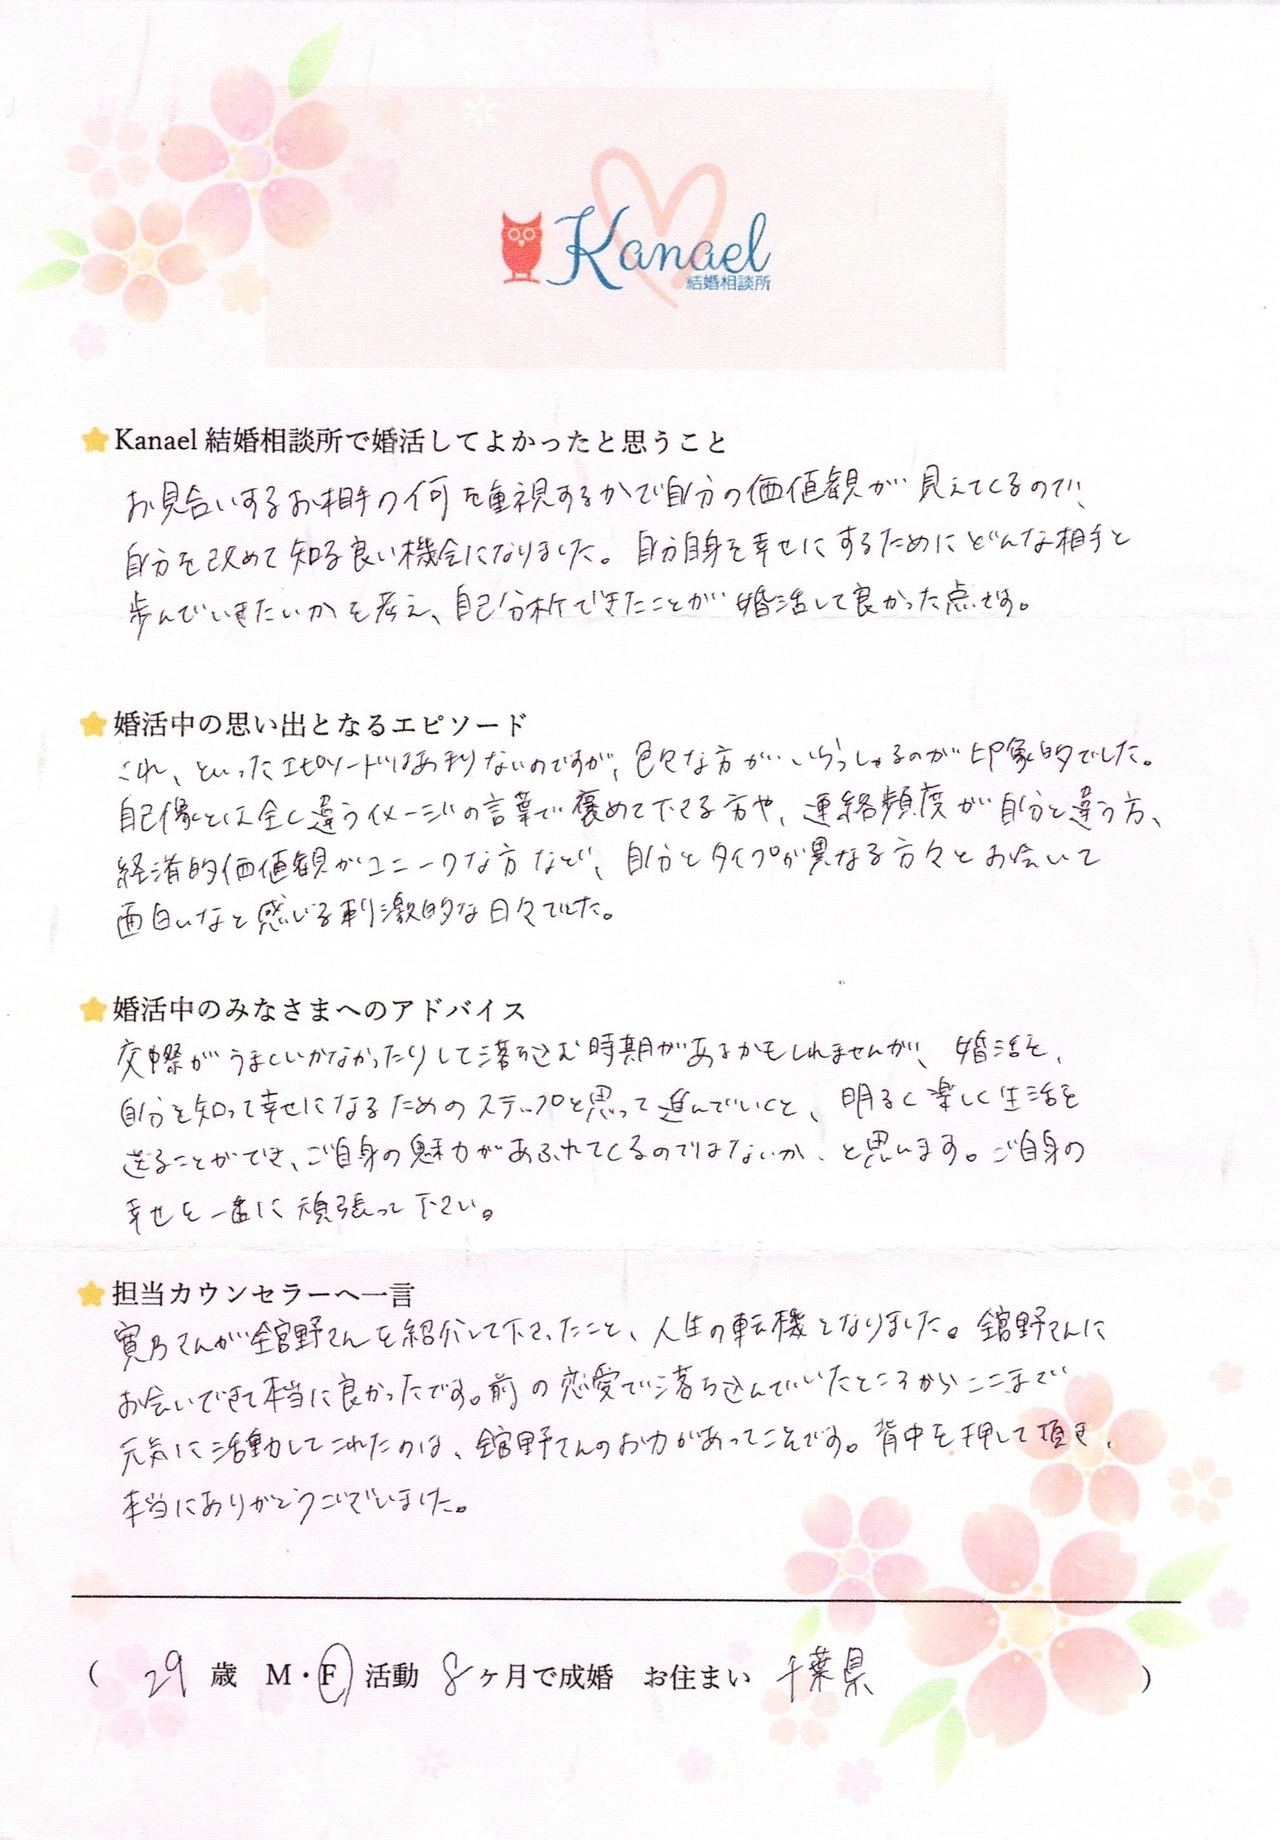 Kanael
結婚相談所
Kanael 結婚相談所で婚活してよかったと思うこと
お見合いするお相手の何を重視するかで自分の価値観が見えてくるので、
自分を改めて知る良い機会になりました。自分自身を幸せにするためにどんな相手と
歩んでいきたいかを考え、自己分析できたことが婚活して良かった点です。
婚活中の思い出となるエピソード
これ、といったエピソードはあまりないのですが、色々な方がいらっしゃるのが印象的でした。
自己像とは全く違うイメージの言葉で褒めて下さる方や、連絡頻度が自分と違う方、
経済的価値観がユニークな方など、自分とタイプが異なる方々とお会いて
面白いなと感じる刺激的な日々でした。
婚活中のみなさまへのアドバイス
交際がうまくいかなかったりして落ち込む時期があるかもしれませんが、婚活を、
自分を知って幸せになるためのステップと思って進んでいくと、明るく楽しく生活を
送ることができ、ご自身の魅力があふれてくるのではないか、と思います。ご自身の
幸せを一番に頑張って下さい。
担当カウンセラーへ一言
寛乃さんが舘野さんを紹介して下さったこと、人生の転機となりました。舘野さんに
お会いできて本当に良かったです。前の恋愛で落ち込んでいたところからここまで
元気に活動してこれたのは、舘野さんのお力があってこそです。背中を押して頂き、
本当にありがとうございました。
( 29 歳 M・F 活動 8 ヶ月で成婚 お住まい 千葉県 )